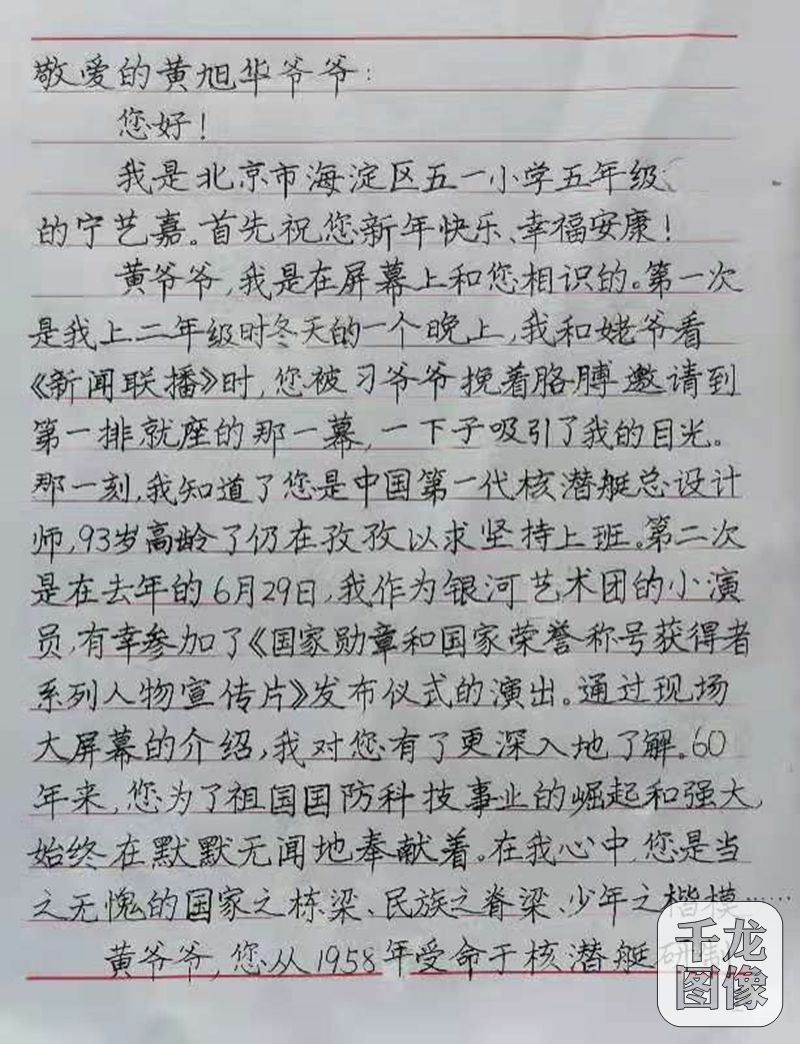 敬爱的黄旭华爷爷:
您好!
我是北京市海淀区五一小学五年级
的宁艺嘉。首先祝您新年快乐、幸福安康!
黄爷爷,我是在屏幕上和您相识的。第一次
是我上二年级时冬天的一个晚上,我和姥爷看
《新闻联播》时,您被习爷爷挽着胳膊邀请到
第一排就座的那一幕,一下子吸引了我的目光。
那一刻,我知道了您是中国第一代核潜艇总设计
师,93岁高龄了仍在孜孜以求坚持上班。第二次
是在去年的6月29日,我作为银河艺术团的小演
员,有幸参加了《国家勋章和国家荣誉称号获得者
系列人物宣传片》发布仪式的演出。通过现场
大屏幕的介绍,我对您有了更深入地了解。60
年来,您为了祖国国防科技事业的崛起和强大,
始终在默默无闻地奉献着。在我心中,您是当
之无愧的国家之栋梁、民族之脊梁、少年之楷模……
黄爷爷,您从1958年受命于核潜艇
千龙
图像